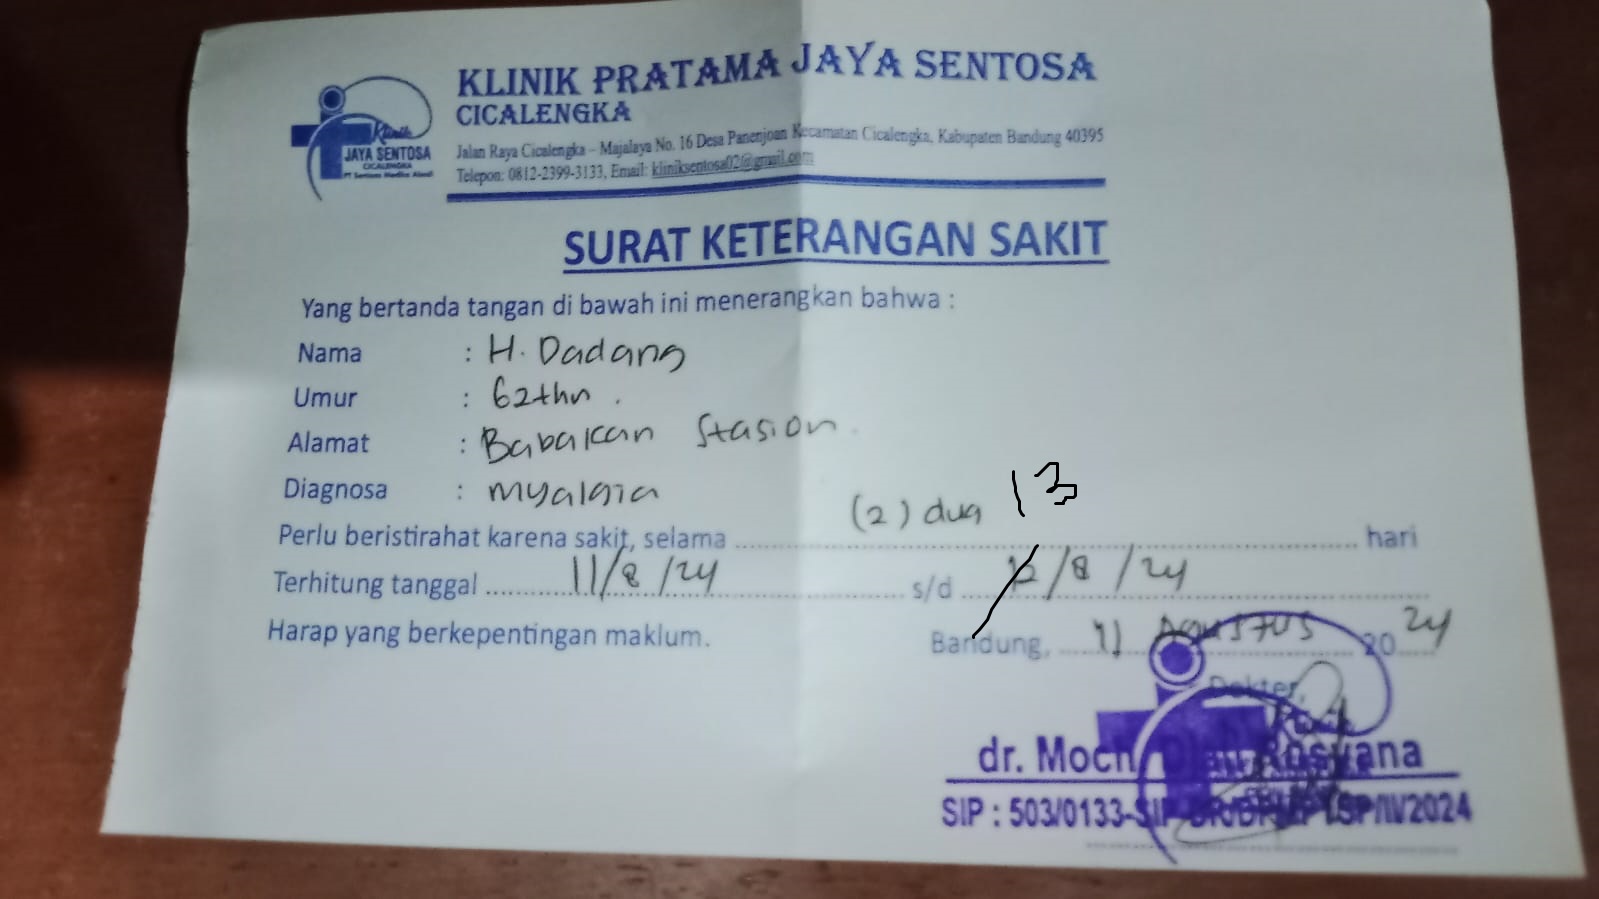 KLINIK PRATAMA JAYA SENTOSA
CICALENGKA
Jalan Raya Cicalengka – Majalaya No. 16 Desa Panenjoan Kecamatan Cicalengka, Kabupaten Bandung 40395
Telepon: 0812-2399-3133, Email: kliniksentosa02@gmail.com
Klinik
JAYA SENTOSA
CICALENGKA
SURAT KETERANGAN SAKIT
Yang bertanda tangan di bawah ini menerangkan bahwa :
Nama : H. Dadang
Umur : 62thn .
Alamat : Babakan Stasion
Diagnosa : myalgia
13
Perlu beristirahat karena sakit, selama (2) dua hari
Terhitung tanggal 11/8/24 s/d 12/8/24
Harap yang berkepentingan maklum.
Bandung, 11 Agustus 2024
Dokter,
dr. Moch. Rosyana
SIP : 503/0133-SIP